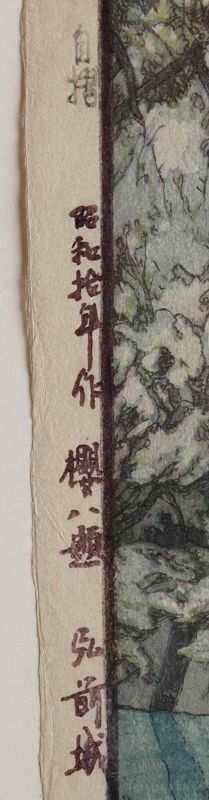 自摺
昭和拾年作 櫻八題 弘前城